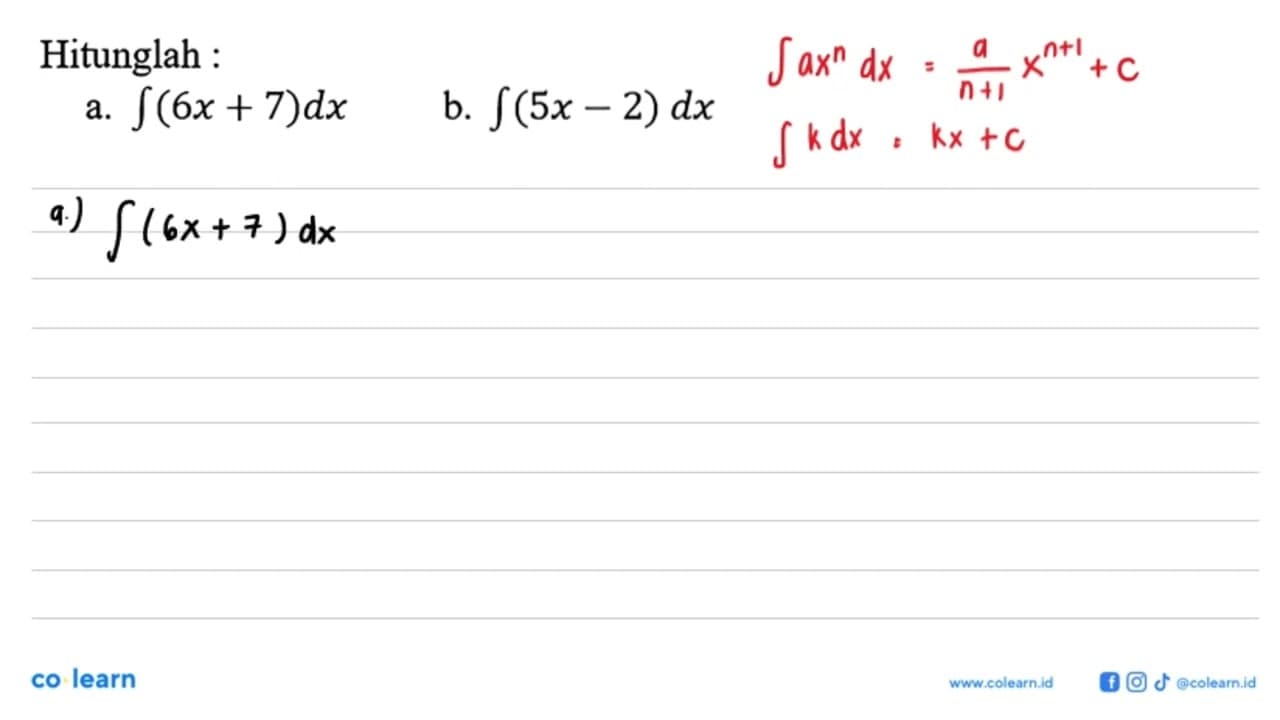 Hitunglah :
a. ∫(6x + 7)dx b. ∫(5x − 2) dx
∫ax^n dx = a/(n+1) x^(n+1) + c
∫ k dx = kx + c
a.) ∫(6x + 7) dx
co learn
www.colearn.id @colearn.id